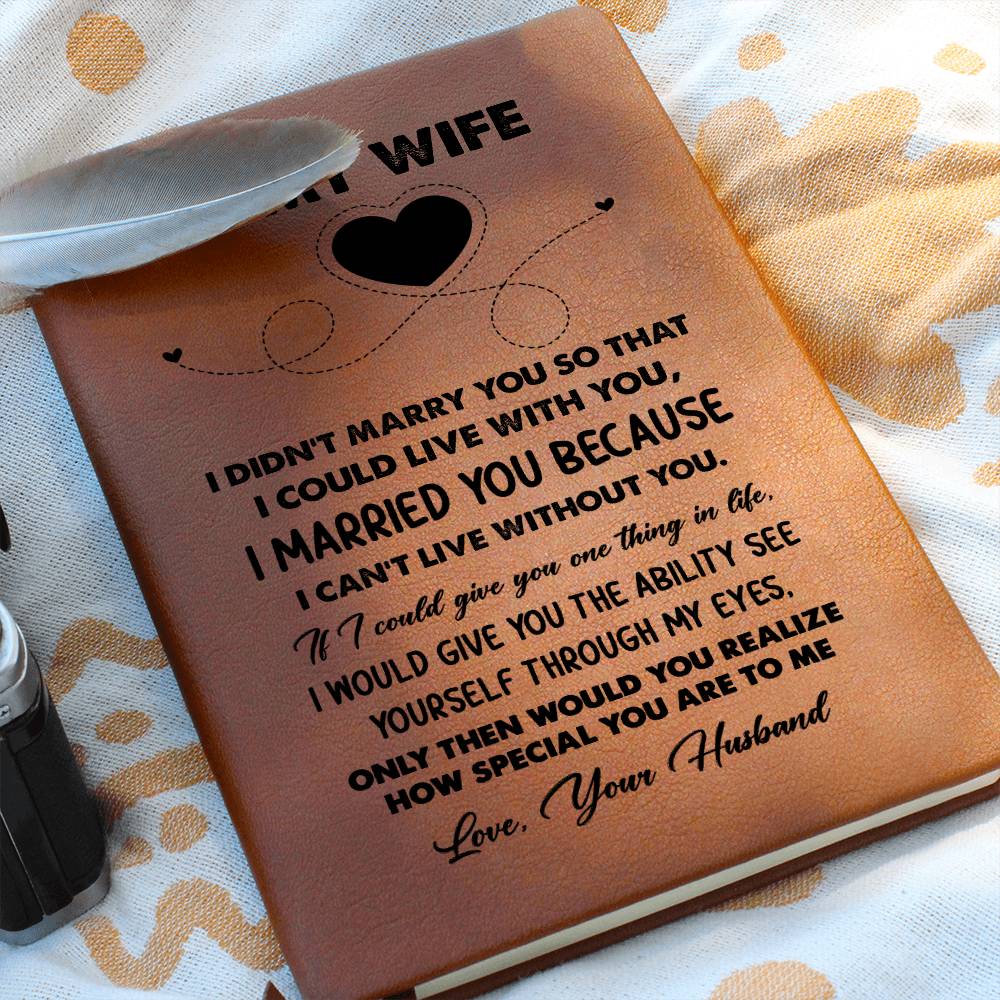 MY WIFE
I DIDN'T MARRY YOU SO THAT
I COULD LIVE WITH YOU,
I MARRIED YOU BECAUSE
I CAN'T LIVE WITHOUT YOU.
If I could give you one thing in life,
I WOULD GIVE YOU THE ABILITY SEE
YOURSELF THROUGH MY EYES,
ONLY THEN WOULD YOU REALIZE
HOW SPECIAL YOU ARE TO ME
Love, Your Husband